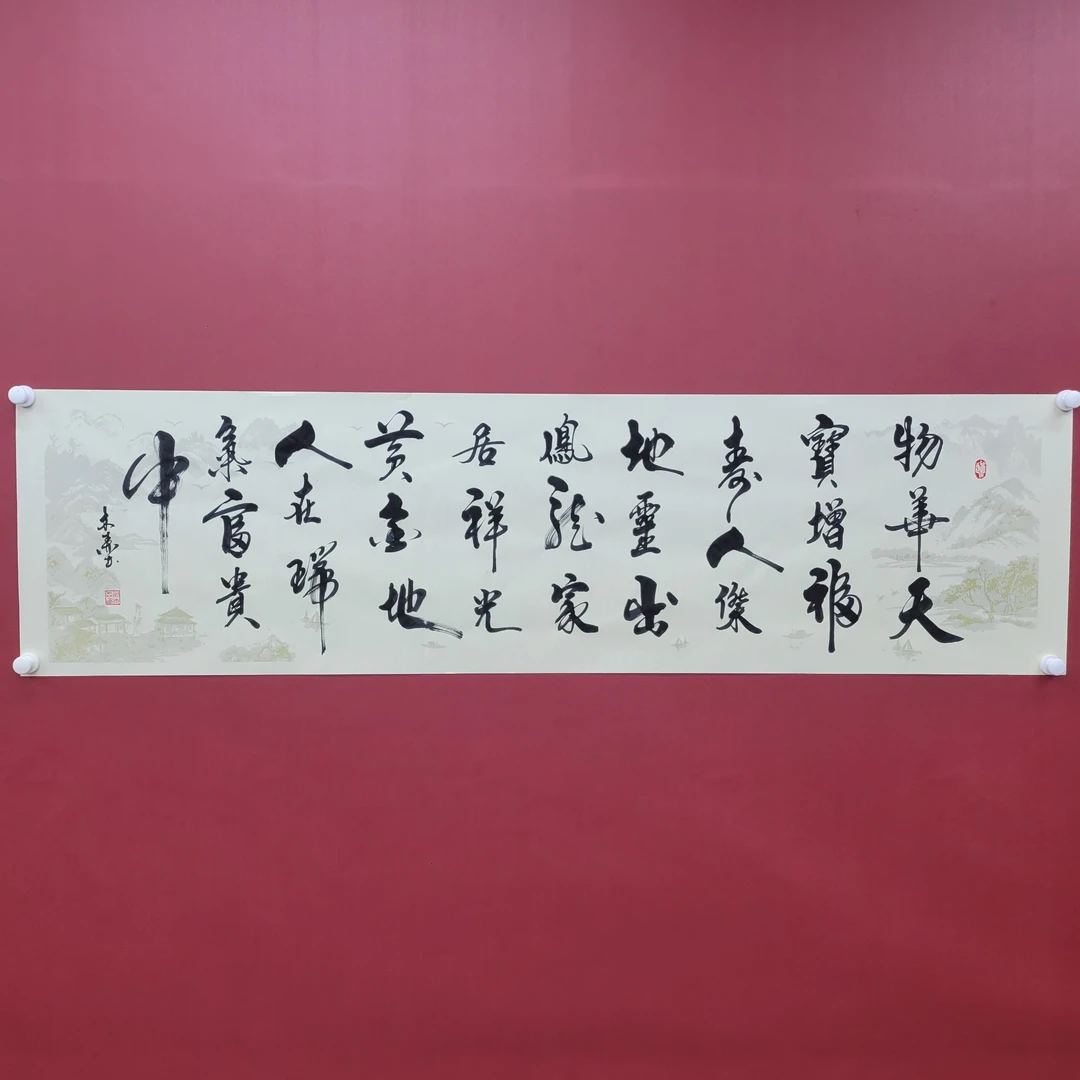 物華天
寶增福
壽人傑
地靈出
鳳龍家
居祥光
黃金地
人在瑞
氣富貴
中